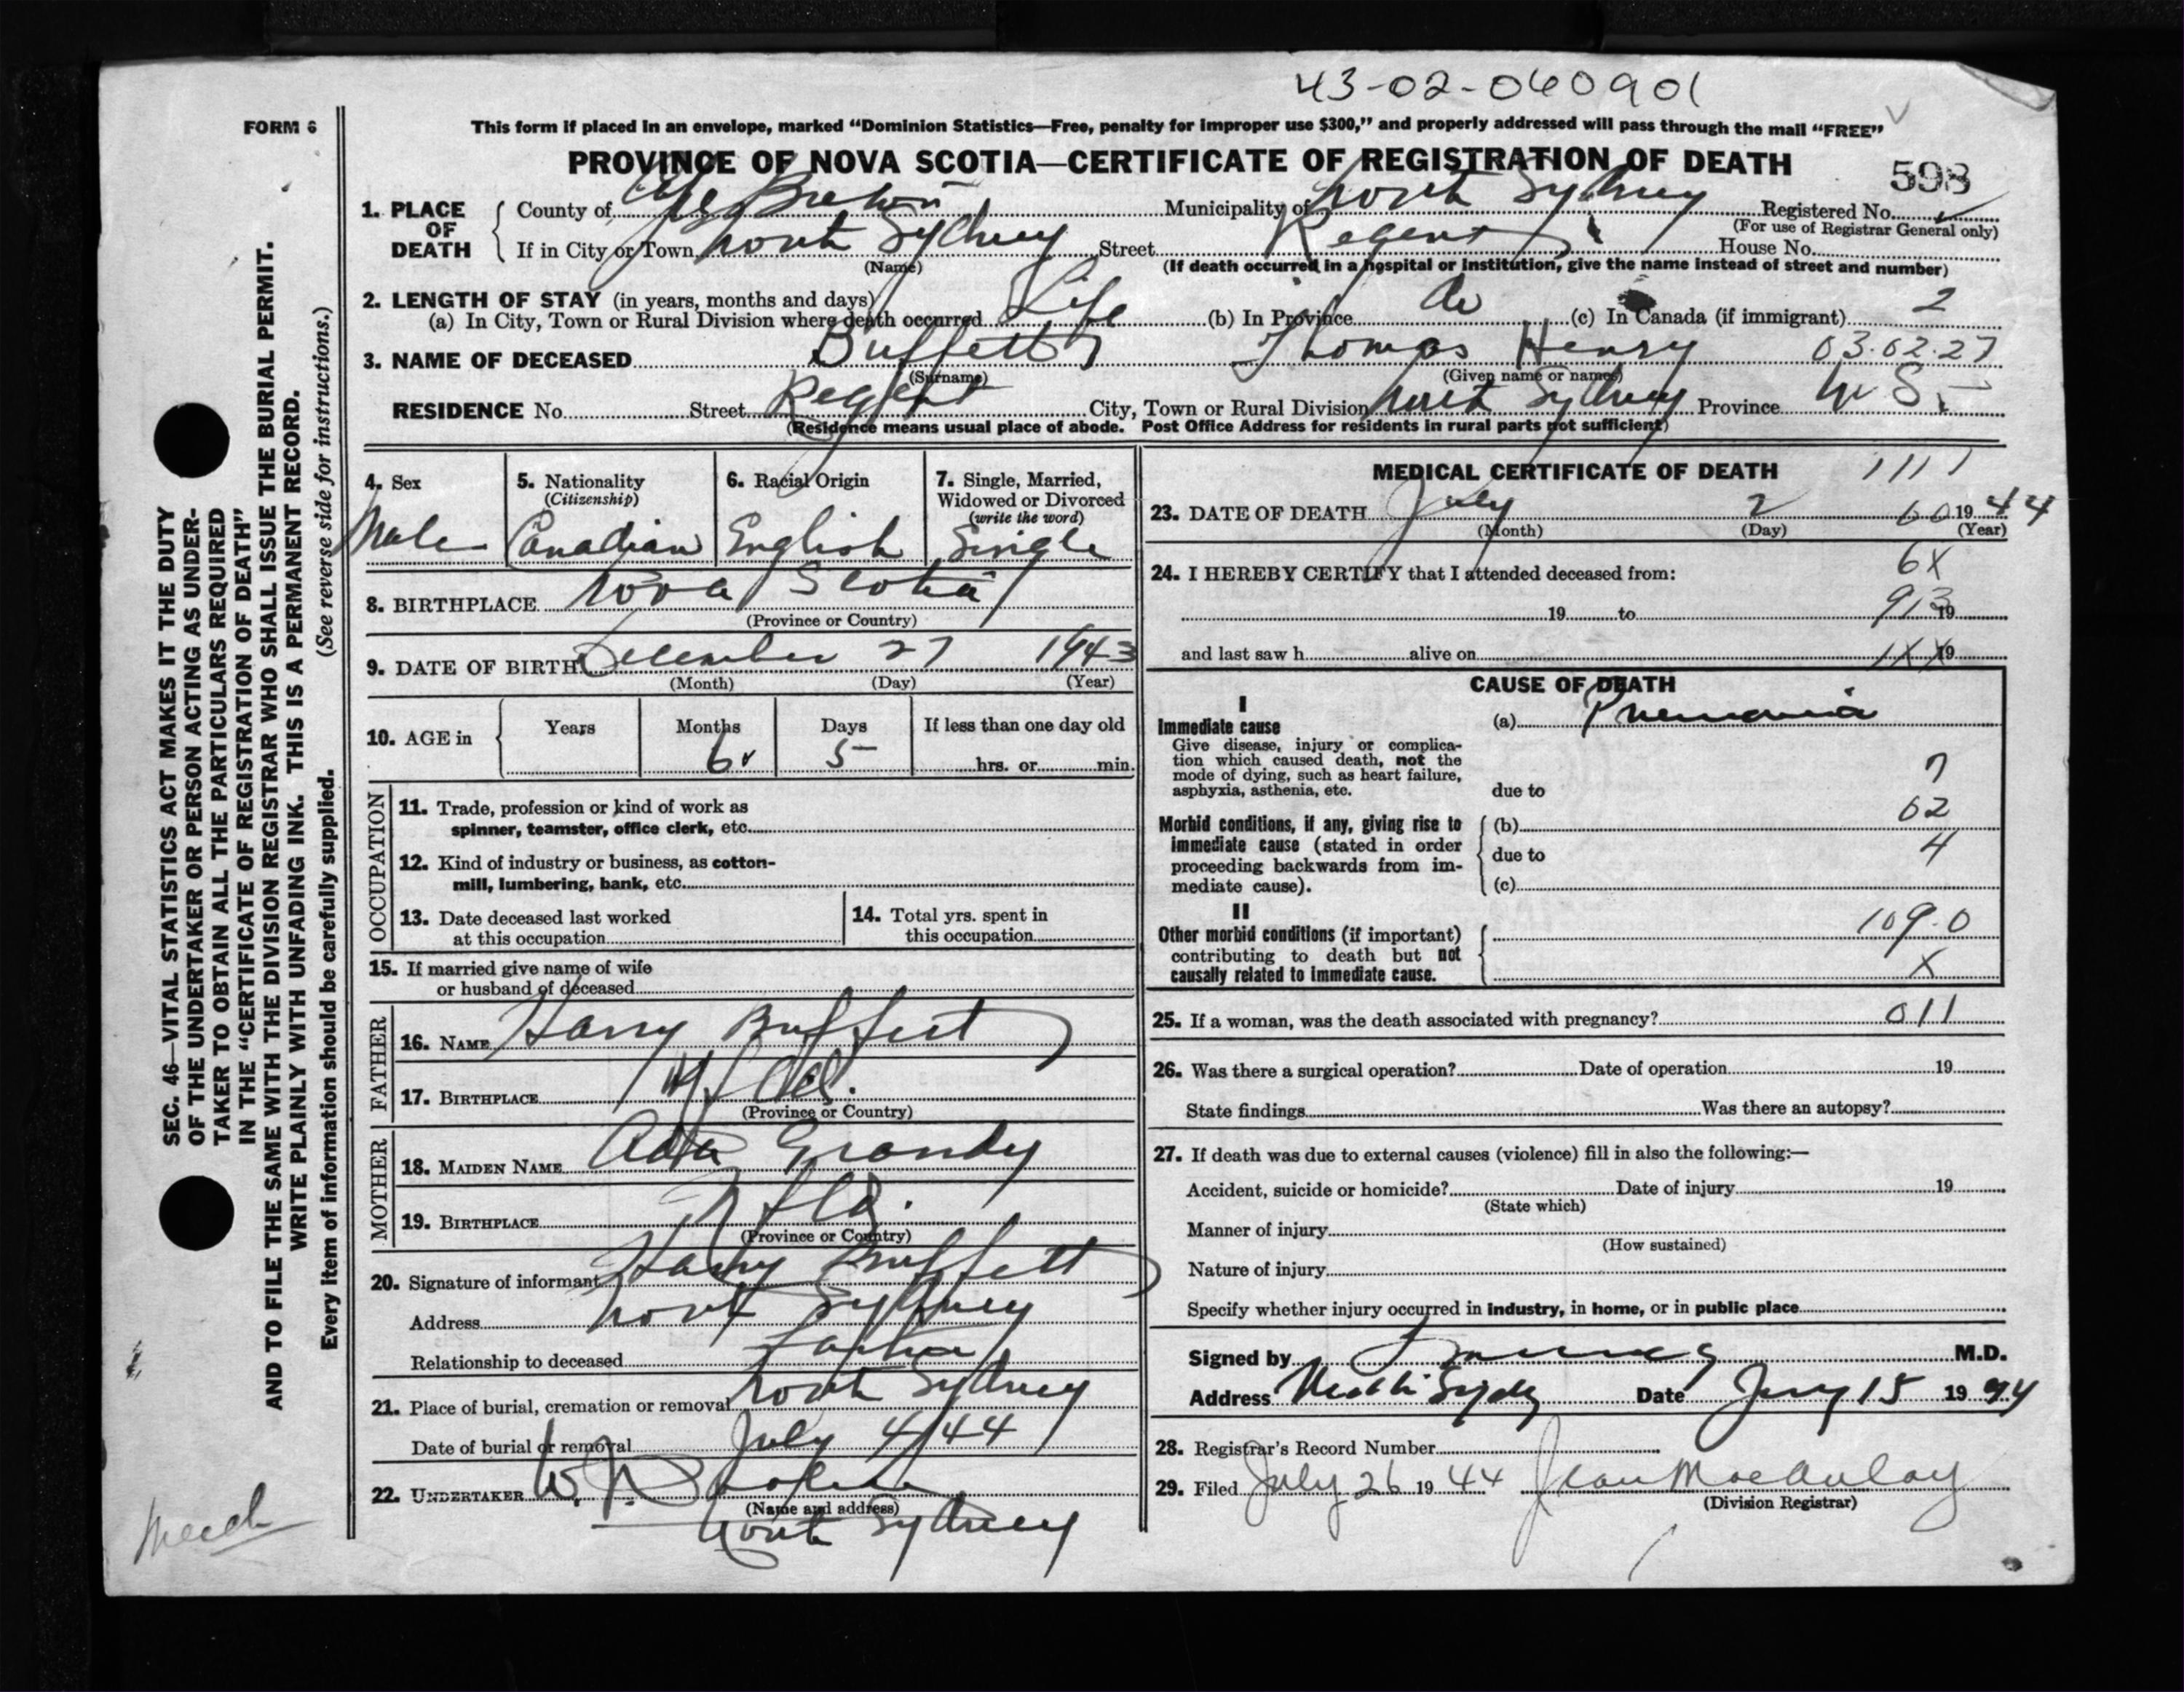 43-02-060901
FORM 6
This form if placed in an envelope, marked “Dominion Statistics—Free, penalty for improper use $300,” and properly addressed will pass through the mail “FREE”
PROVINCE OF NOVA SCOTIA—CERTIFICATE OF REGISTRATION OF DEATH
598
1. PLACE OF DEATH County of Cape Breton Municipality of North Sydney Registered No.
(For use of Registrar General only)
If in City or Town North Sydney Street Regent House No.
(Name) (If death occurred in a hospital or institution, give the name instead of street and number)
2. LENGTH OF STAY (in years, months and days)
(a) In City, Town or Rural Division where death occurred Life (b) In Province do (c) In Canada (if immigrant) 2
3. NAME OF DECEASED Buffett Thomas Henry 03.02.27
(Surname) (Given name or names)
RESIDENCE No. Street Regent City, Town or Rural Division North Sydney Province N S.
(Residence means usual place of abode. Post Office Address for residents in rural parts not sufficient)
4. Sex Male
5. Nationality (Citizenship) Canadian
6. Racial Origin English
7. Single, Married, Widowed or Divorced (write the word) Single
8. BIRTHPLACE Nova Scotia
(Province or Country)
9. DATE OF BIRTH December 27 1943
(Month) (Day) (Year)
10. AGE in Years Months 6 Days 5 If less than one day old
hrs. or min.
OCCUPATION
11. Trade, profession or kind of work as
spinner, teamster, office clerk, etc.
12. Kind of industry or business, as cotton-
mill, lumbering, bank, etc.
13. Date deceased last worked
at this occupation
14. Total yrs. spent in
this occupation
15. If married give name of wife
or husband of deceased
FATHER
16. NAME Harry Buffett
17. BIRTHPLACE Nfld.
(Province or Country)
MOTHER
18. MAIDEN NAME Ada Grandy
19. BIRTHPLACE Nfld.
(Province or Country)
20. Signature of informant Harry Buffett
Address North Sydney
Relationship to deceased Father
21. Place of burial, cremation or removal North Sydney
Date of burial or removal July 4/44
22. UNDERTAKER W.
(Name and address)
North Sydney
MEDICAL CERTIFICATE OF DEATH 1111
23. DATE OF DEATH July 2 60 1944
(Month) (Day) (Year)
24. I HEREBY CERTIFY that I attended deceased from: 6X
19 to 19 913
and last saw h alive on 19 1XX
CAUSE OF DEATH
I
Immediate cause (a) Pneumonia
Give disease, injury or complica-
tion which caused death, not the
mode of dying, such as heart failure,
asphyxia, asthenia, etc. due to 7
02
Morbid conditions, if any, giving rise to (b)
immediate cause (stated in order due to 4
proceeding backwards from im-
mediate cause). (c)
II
Other morbid conditions (if important) 109.0
contributing to death but not
causally related to immediate cause. X
25. If a woman, was the death associated with pregnancy? 011
26. Was there a surgical operation? Date of operation 19
State findings Was there an autopsy?
27. If death was due to external causes (violence) fill in also the following:—
Accident, suicide or homicide? Date of injury 19
(State which)
Manner of injury
(How sustained)
Nature of injury
Specify whether injury occurred in industry, in home, or in public place
Signed by M.D.
Address North Sydney Date July 15 1944
28. Registrar's Record Number
29. Filed July 26 1944 Jean MacAulay
(Division Registrar)
SEC. 46—VITAL STATISTICS ACT MAKES IT THE DUTY
OF THE UNDERTAKER OR PERSON ACTING AS UNDER-
TAKER TO OBTAIN ALL THE PARTICULARS REQUIRED
IN THE “CERTIFICATE OF REGISTRATION OF DEATH”
AND TO FILE THE SAME WITH THE DIVISION REGISTRAR WHO SHALL ISSUE THE BURIAL PERMIT.
WRITE PLAINLY WITH UNFADING INK. THIS IS A PERMANENT RECORD.
Every item of information should be carefully supplied. (See reverse side for instructions.)